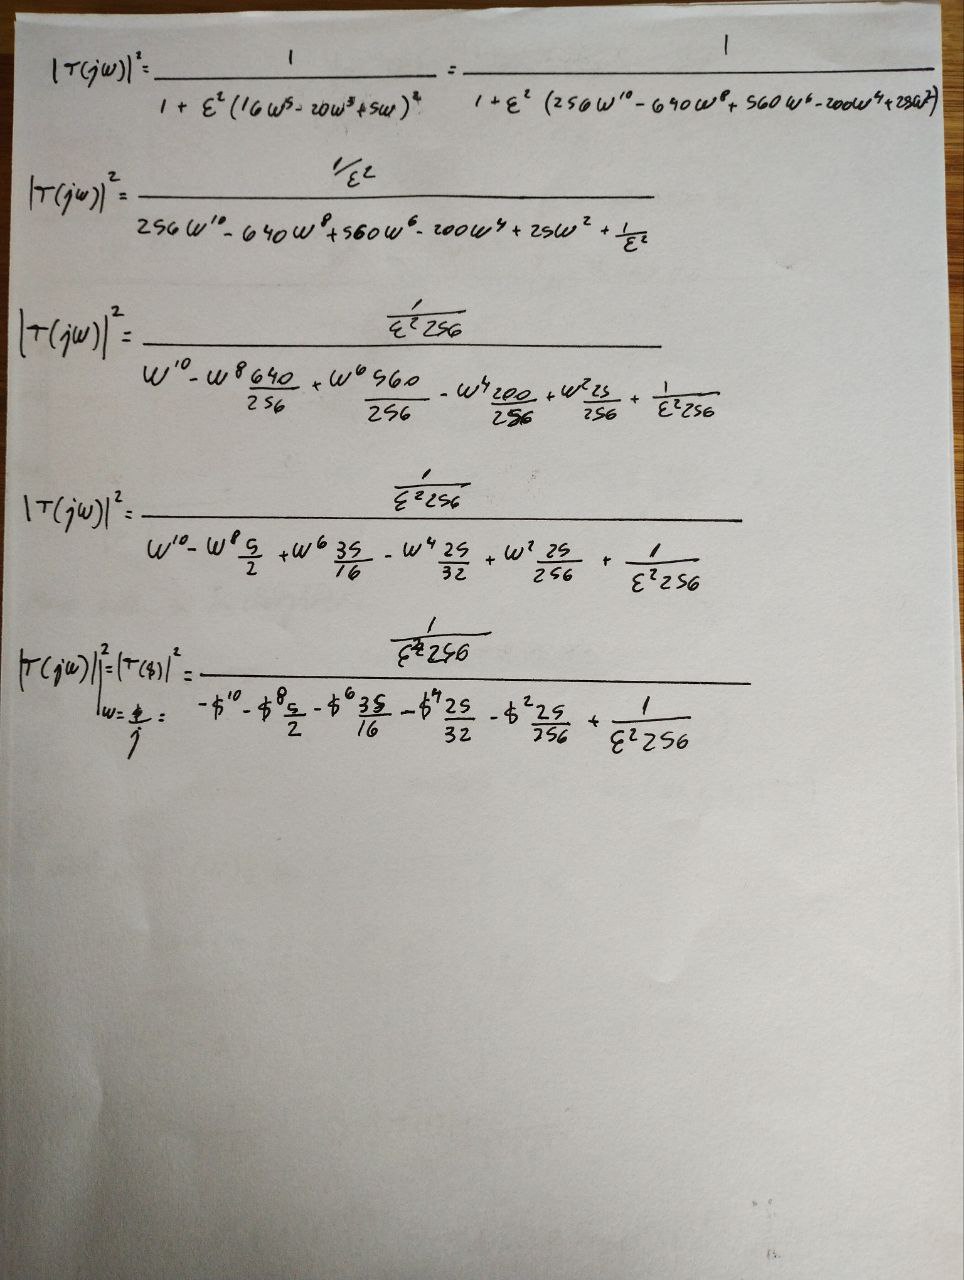 |T(jω)|² = 1 / (1 + ε² (16ω⁵ - 20ω³ + 5ω)²) = 1 / (1 + ε² (256ω¹⁰ - 640ω⁸ + 560ω⁶ - 200ω⁴ + 25ω²))
|T(jω)|² = (1/ε²) / (256ω¹⁰ - 640ω⁸ + 560ω⁶ - 200ω⁴ + 25ω² + 1/ε²)
|T(jω)|² = (1/(ε² 256)) / (ω¹⁰ - ω⁸ 640/256 + ω⁶ 560/256 - ω⁴ 200/256 + ω² 25/256 + 1/(ε² 256))
|T(jω)|² = (1/(ε² 256)) / (ω¹⁰ - ω⁸ 5/2 + ω⁶ 35/16 - ω⁴ 25/32 + ω² 25/256 + 1/(ε² 256))
|T(jω)|²|ω=$/j = |T($)|² = (1/(ε² 256)) / (-$¹⁰ - $⁸ 5/2 - $⁶ 35/16 - $⁴ 25/32 - $² 25/256 + 1/(ε² 256))